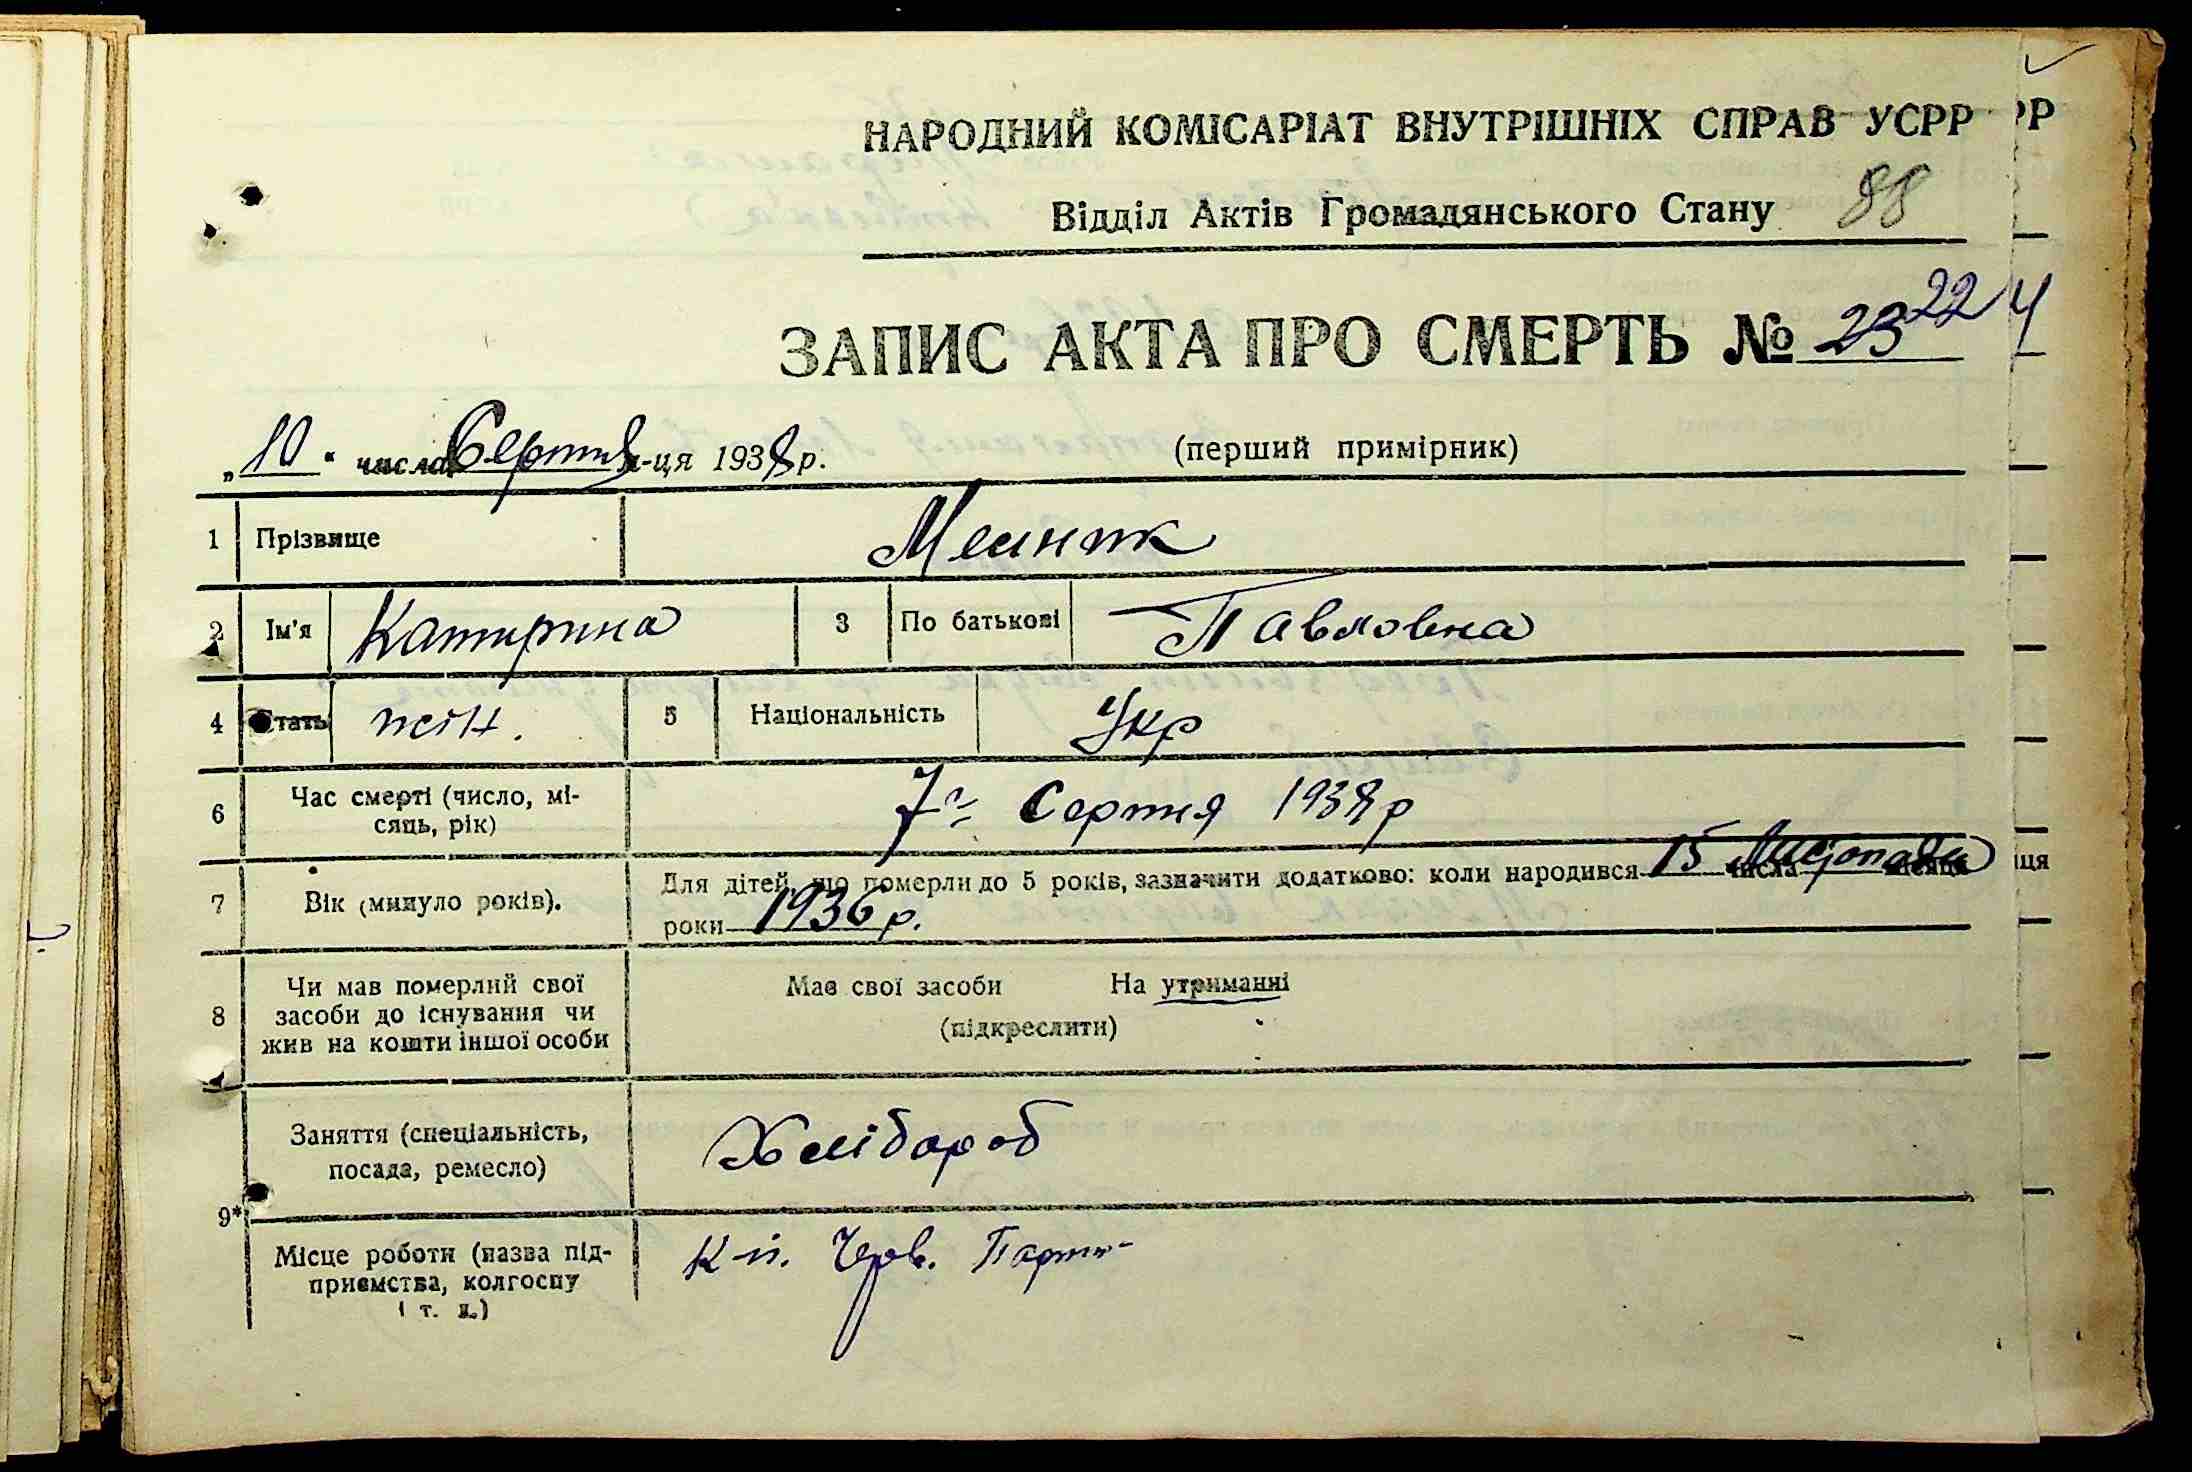 НАРОДНИЙ КОМІСАРІАТ ВНУТРІШНІХ СПРАВ УСРР
РР
Відділ Актів Громадянського Стану 88
ЗАПИС АКТА ПРО СМЕРТЬ № 23 22
4
„10" числа Серпня м-ця 1938 р. (перший примірник)
1 Прізвище Мелник
2 Ім'я Катирина 3 По батькові Павловна
4 Стать жін. 5 Національність Укр
6 Час смерті (число, мі-
сяць, рік)
7го Серпня 1938 р
7 Вік (минуло років).
Для дітей, що померли до 5 років, зазначити додатково: коли народився 15 числа Листопада місяця
ця
роки 1936 р.
8 Чи мав померлий свої
засоби до існування чи
жив на кошти іншої особи
Має свої засоби На утриманні
(підкреслити)
9*
Заняття (спеціальність,
посада, ремесло)
Хлібороб
Місце роботи (назва під-
приємства, колгоспу
і т. д.)
К-п. Черв. Парти-